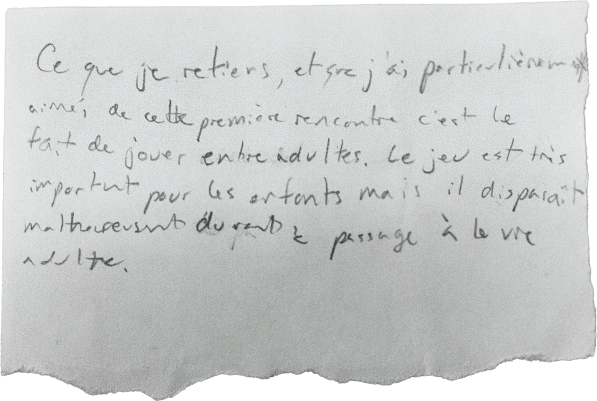 Ce que je retiens, et que j'ai particulièrement
aimé, de cette première rencontre c'est le
fait de jouer entre adultes. Le jeu est très
important pour les enfants mais il disparaît
malheureusement durant le passage à la vie
adulte.